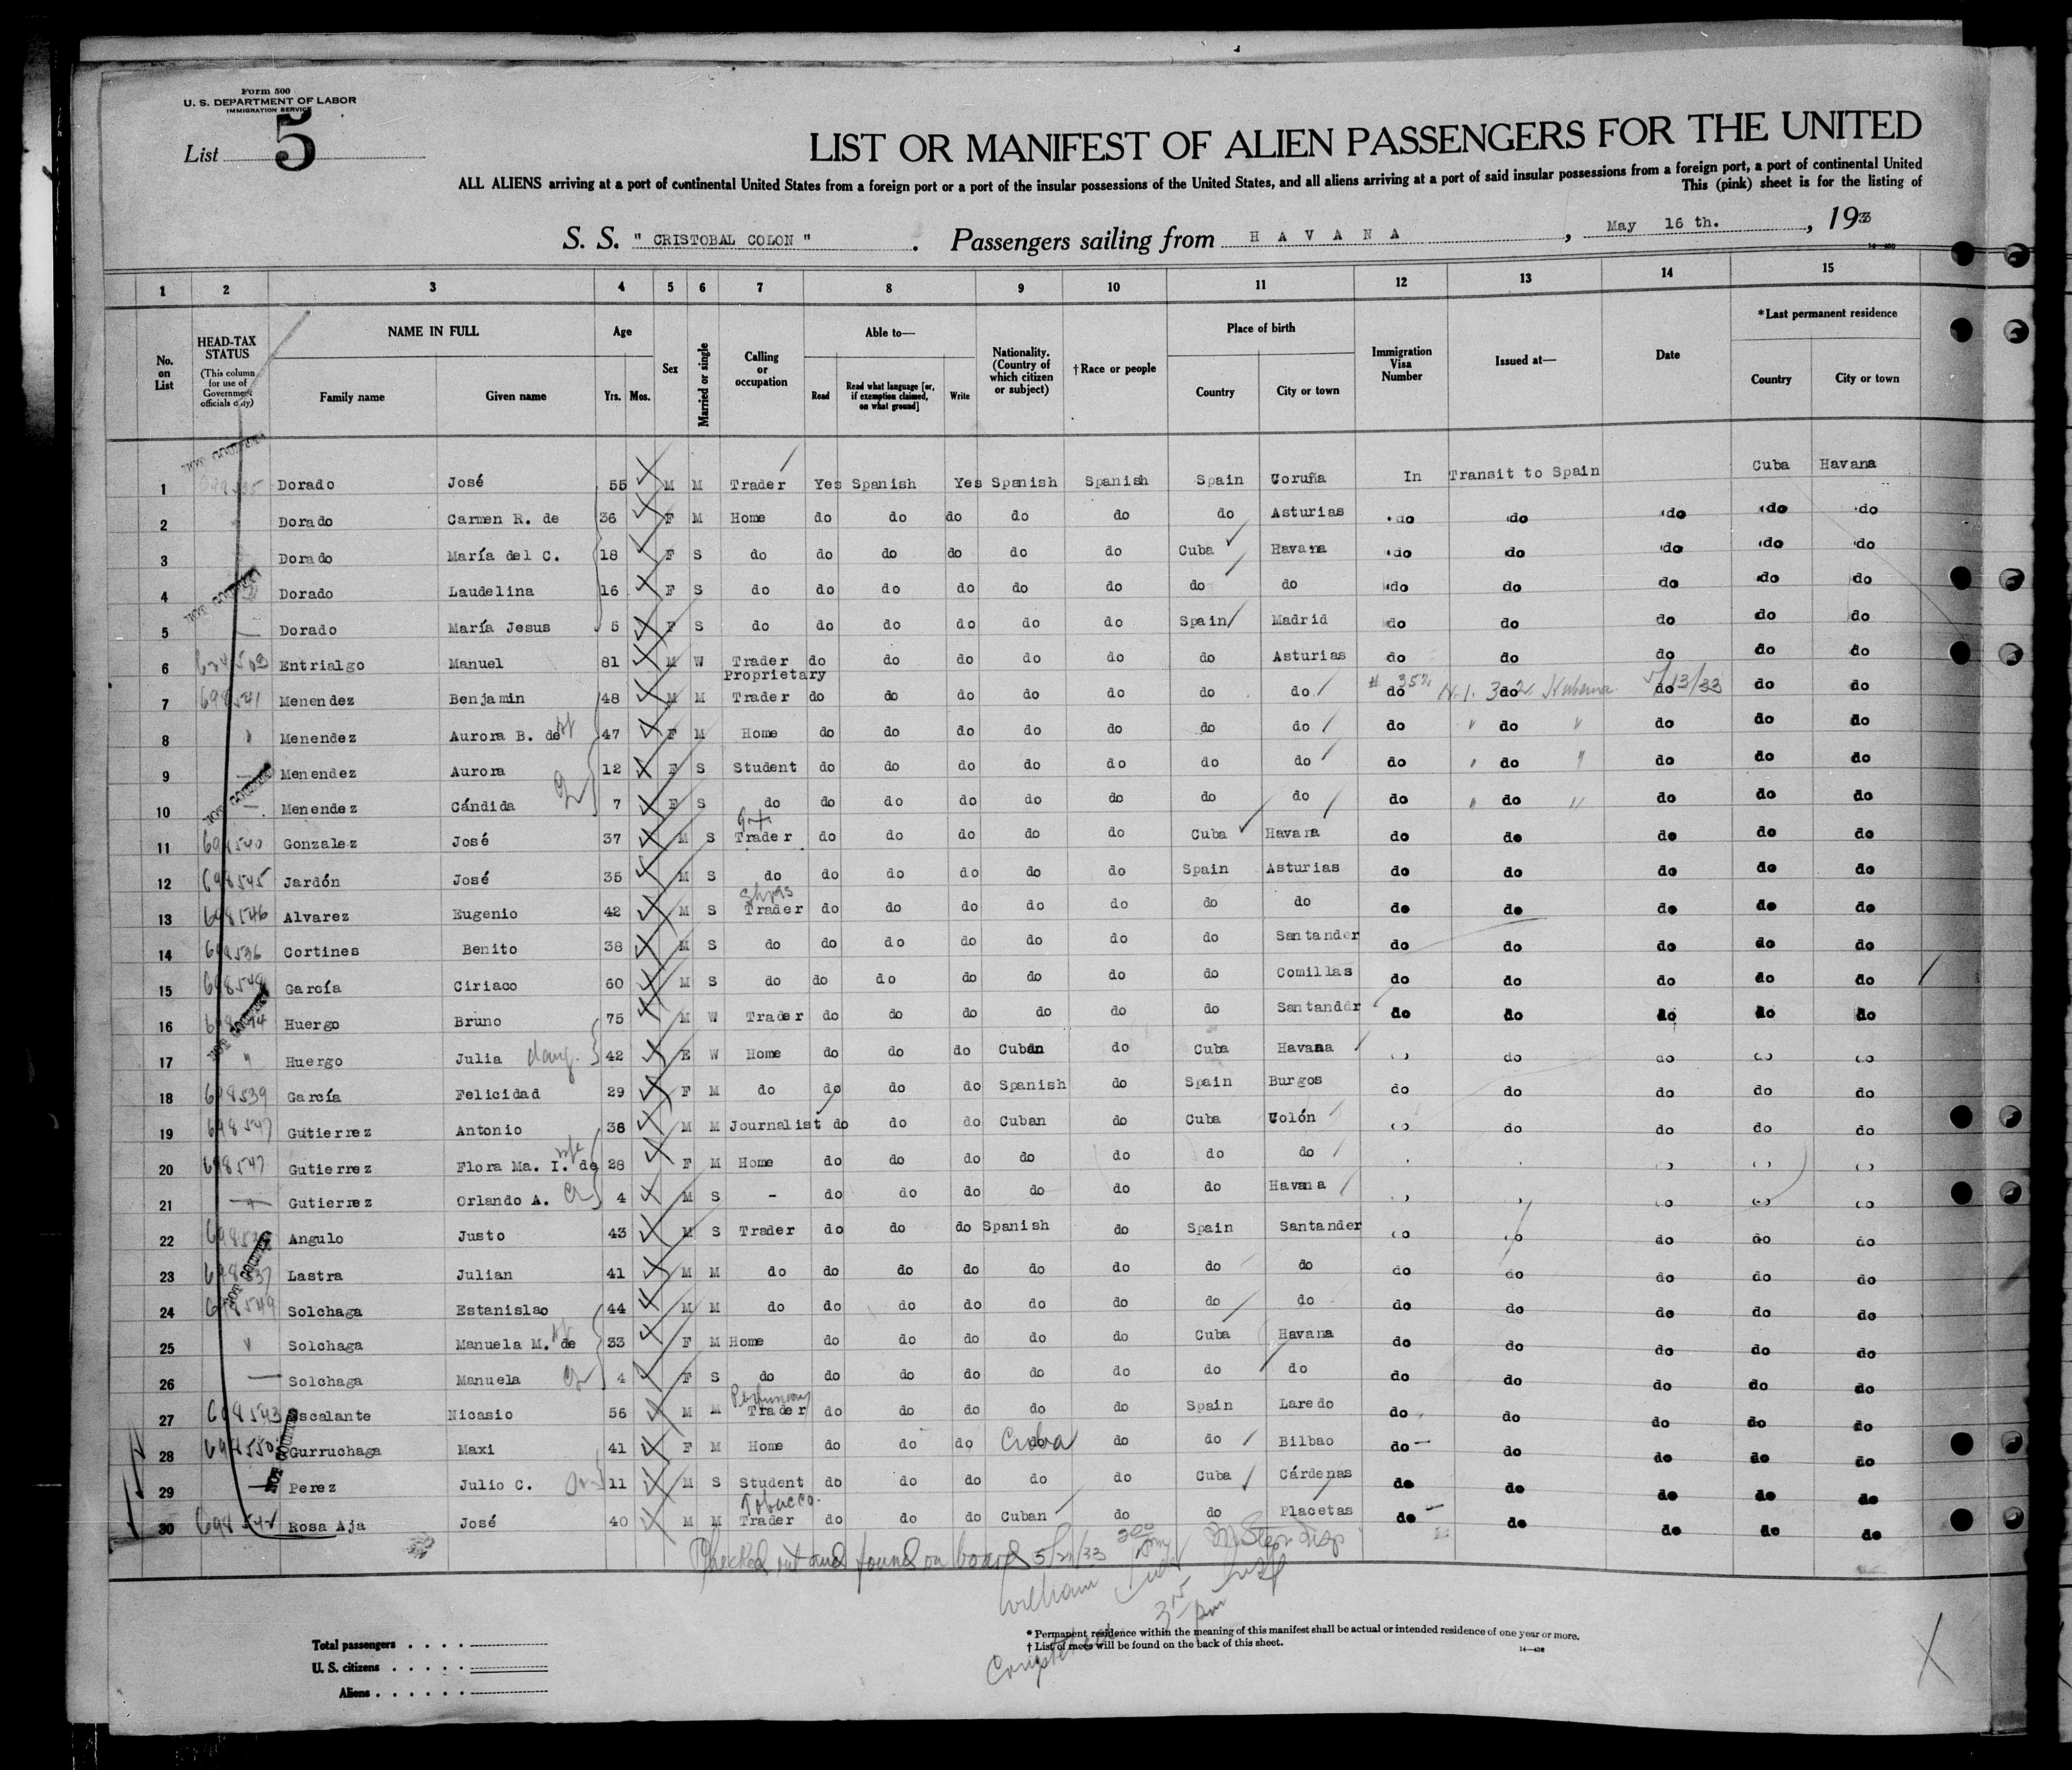 Form 500
U. S. DEPARTMENT OF LABOR
IMMIGRATION SERVICE
List 5
LIST OR MANIFEST OF ALIEN PASSENGERS FOR THE UNITED
ALL ALIENS arriving at a port of continental United States from a foreign port or a port of the insular possessions of the United States, and all aliens arriving at a port of said insular possessions from a foreign port, a port of continental United
This (pink) sheet is for the listing of
S. S. " CRISTOBAL COLON " . Passengers sailing from H A V A N A , May 16 th. , 1933
1 2 3 4 5 6 7 8 9 10 11 12 13 14 15
No. on List
HEAD-TAX STATUS (This column for use of Government officials only)
NAME IN FULL Family name Given name
Age Yrs. Mos.
Sex
Married or single
Calling or occupation
Able to— Read Read what language [or, if exemption claimed, on what ground] Write
Nationality. (Country of which citizen or subject)
†Race or people
Place of birth Country City or town
Immigration Visa Number
Issued at—
Date
*Last permanent residence Country City or town
1 Dorado José 55 M M Trader Yes Spanish Yes Spanish Spanish Spain Coruña In Transit to Spain Cuba Havana
2 Dorado Carmen R. de 36 F M Home do do do do do do Asturias do do do do do
3 Dorado María del C. 18 F S do do do do do do Cuba Havana do do do do do
4 Dorado Laudelina 16 F S do do do do do do do do do do do do do
5 Dorado María Jesus 5 F S do do do do do do Spain Madrid do do do do do
6 Entrialgo Manuel 81 M W Trader do do do do do do Asturias do do do do do
Proprietary
7 698541 Menendez Benjamin 48 M M Trader do do do do do do do do do do 5/13/33 do do
8 " Menendez Aurora B. de 47 F M Home do do do do do do do do " do " do do do
9 — Menendez Aurora 12 F S Student do do do do do do do do " do " do do do
10 — Menendez Cándida 7 F S do do do do do do do do do " do " do do do
11 698540 Gonzalez José 37 M S Trader do do do do do Cuba Havana do do do do do
12 698545 Jardón José 35 M S do do do do do do Spain Asturias do do do do do
13 698546 Alvarez Eugenio 42 M S Trader do do do do do do do do do do do do
14 698536 Cortines Benito 38 M S do do do do do do do Santander do do do do do
15 698548 García Ciriaco 60 M S do do do do do do do Comillas do do do do do
16 Huergo Bruno 75 M W Trader do do do do do do Santanddr do do do do do
17 " Huergo Julia daug. 42 F W Home do do do Cuban do Cuba Havana do do
18 698539 García Felicidad 29 F M do do do do Spanish do Spain Burgos do do do do do
19 698547 Gutierrez Antonio 38 M M Journalist do do do Cuban do Cuba Colón do do do do
20 698547 Gutierrez Flora Ma. I. de wfe 28 F M Home do do do do do do do
21 — Gutierrez Orlando A. 4 M S - do do do do do do Havana
22 Angulo Justo 43 M S Trader do do do Spanish do Spain Santander do do do
23 Lastra Julian 41 M M do do do do do do do do do do do do do
24 698549 Solchaga Estanislao 44 M M do do do do do do do do do do do do do
25 " Solchaga Manuela M. de 33 F M Home do do do do do Cuba Havana do do do do do
26 — Solchaga Manuela 4 F S do do do do do do do do do do do do do
27 698543 Escalante Nicasio 56 M M Trader do do do do do Spain Laredo do do do do do
28 698550 Gurruchaga Maxi 41 F M Home do do do Cuba do do Bilbao do do do do do
29 — Perez Julio C. 11 M S Student do do do do do Cuba Cárdenas do do do do do
Tobacco
30 698542 Rosa Aja José 40 M M Trader do do do Cuban do do Placetas do do do do do
NOT COUNTED
Checked out and found on board 5/21/33
William
3 15 pm
Completed
* Permanent residence within the meaning of this manifest shall be actual or intended residence of one year or more.
† List of races will be found on the back of this sheet.
14—430
Total passengers . . . .
U. S. citizens . . . . .
Aliens . . . . . .